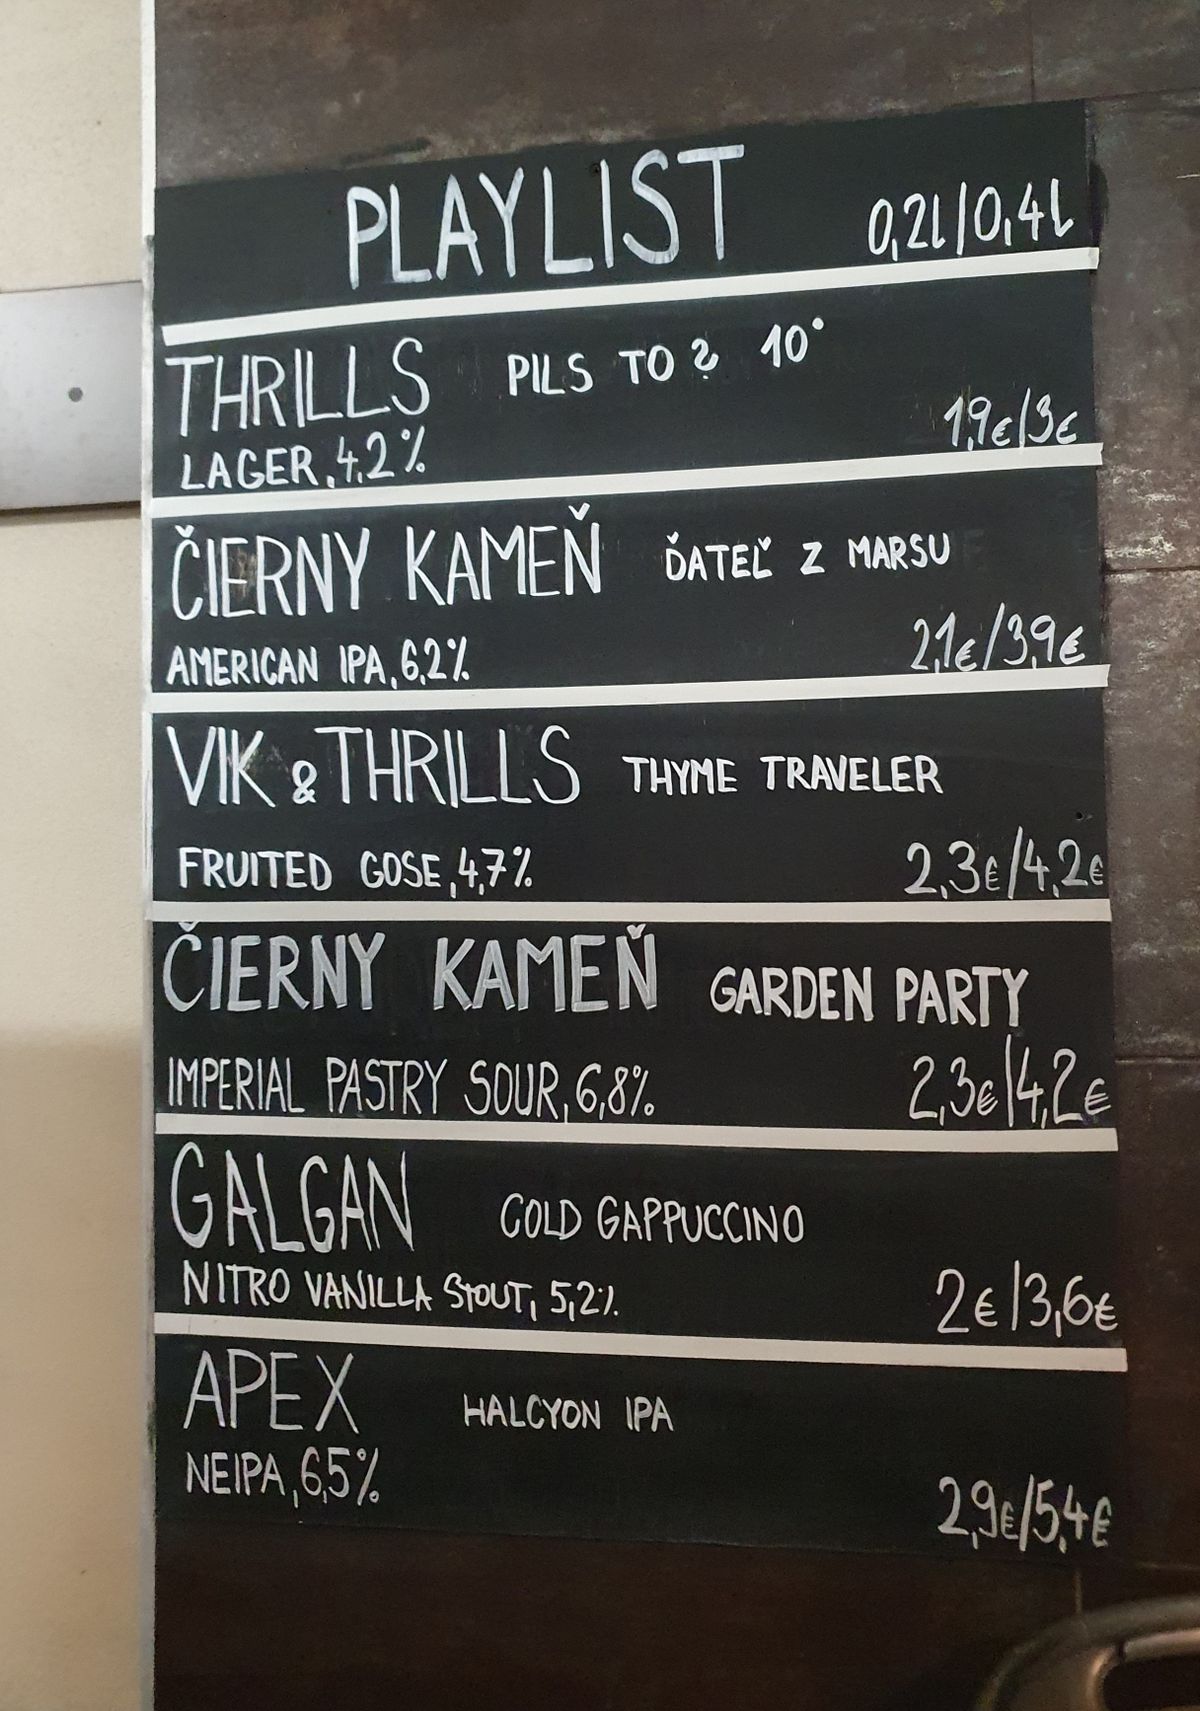 PLAYLIST 0,2l/0,4l
THRILLS PILS TO ? 10°
1,9€/3€
LAGER, 4,2%
ČIERNY KAMEŇ ĎATEĽ Z MARSU
AMERICAN IPA, 6,2% 2,1€/3,9€
VIK & THRILLS THYME TRAVELER
FRUITED GOSE, 4,7% 2,3€/4,2€
ČIERNY KAMEŇ GARDEN PARTY
IMPERIAL PASTRY SOUR, 6,8% 2,3€/4,2€
GALGAN COLD GAPPUCCINO
NITRO VANILLA STOUT, 5,2% 2€/3,6€
APEX HALCYON IPA
NEIPA, 6,5%
2,9€/5,4€